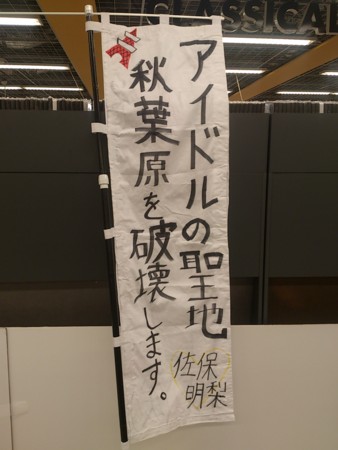 CLASSICAL
アイドルの聖地
秋葉原を破壊します。
佐保
明梨